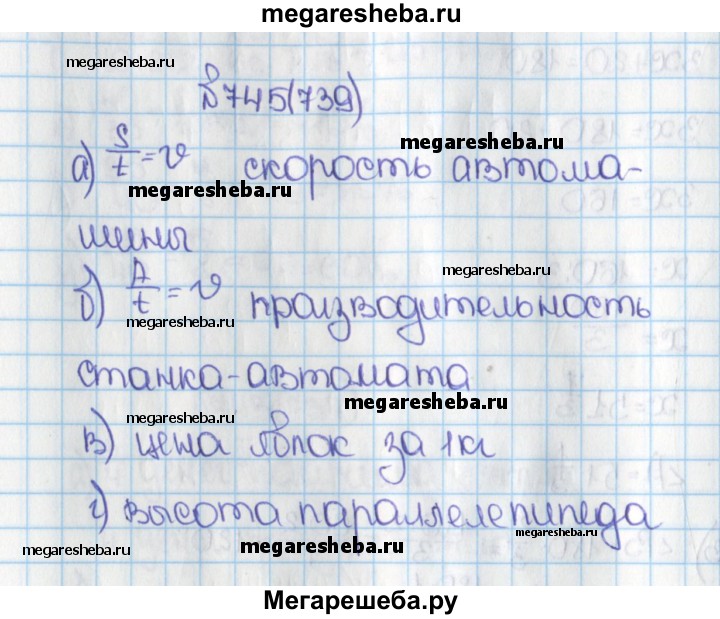 megaresheba.ru
megaresheba.ru
№745(739)
megaresheba.ru
а) S/t = v скорость автома-
megaresheba.ru
шины
megaresheba.ru
megaresheba.ru
б) A/t = v производительность
megaresheba.ru
станка-автомата
megaresheba.ru
megaresheba.ru
в) цена яблок за 1кг
г) высота параллелепипеда
megaresheba.ru
megaresheba.ru
megaresheba.ru
Мегарешеба.ру